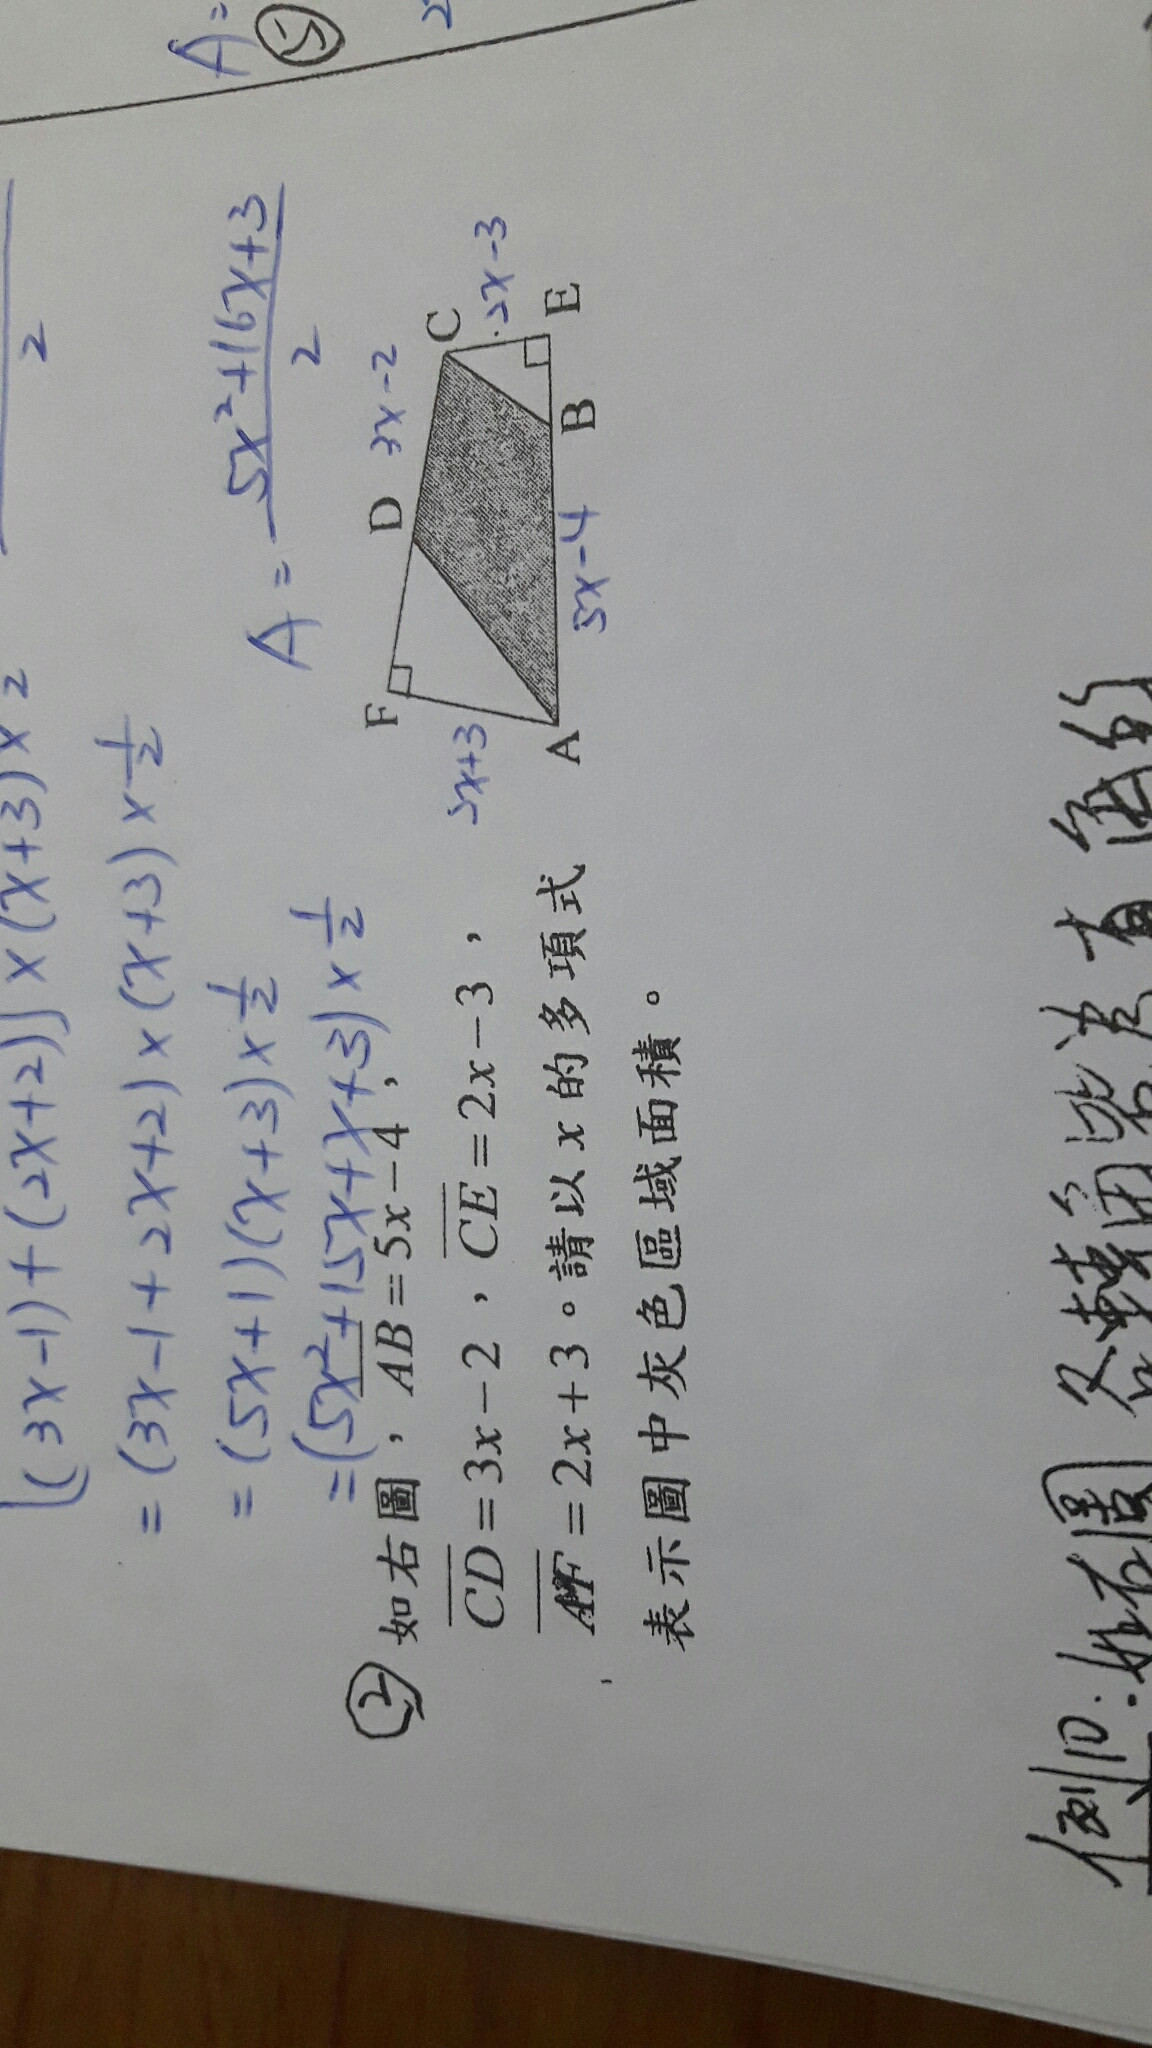 [(3x-1)+(2x+2)]×(x+3)×
2
2
=(3x-1+2x+2)×(x+3)×1/2
=(5x+1)(x+3)×1/2
=(5x²+15x+x+3)×1/2
A=
5x²+16x+3
2
② 如右圖，AB=5x-4，
CD=3x-2，CE=2x-3，
AF=2x+3。請以x的多項式
表示圖中灰色區域面積。
F
D
3x-2
C
2x+3
2x-3
A
5x-4
B
E
A=
⑤
2
例10.如右圖